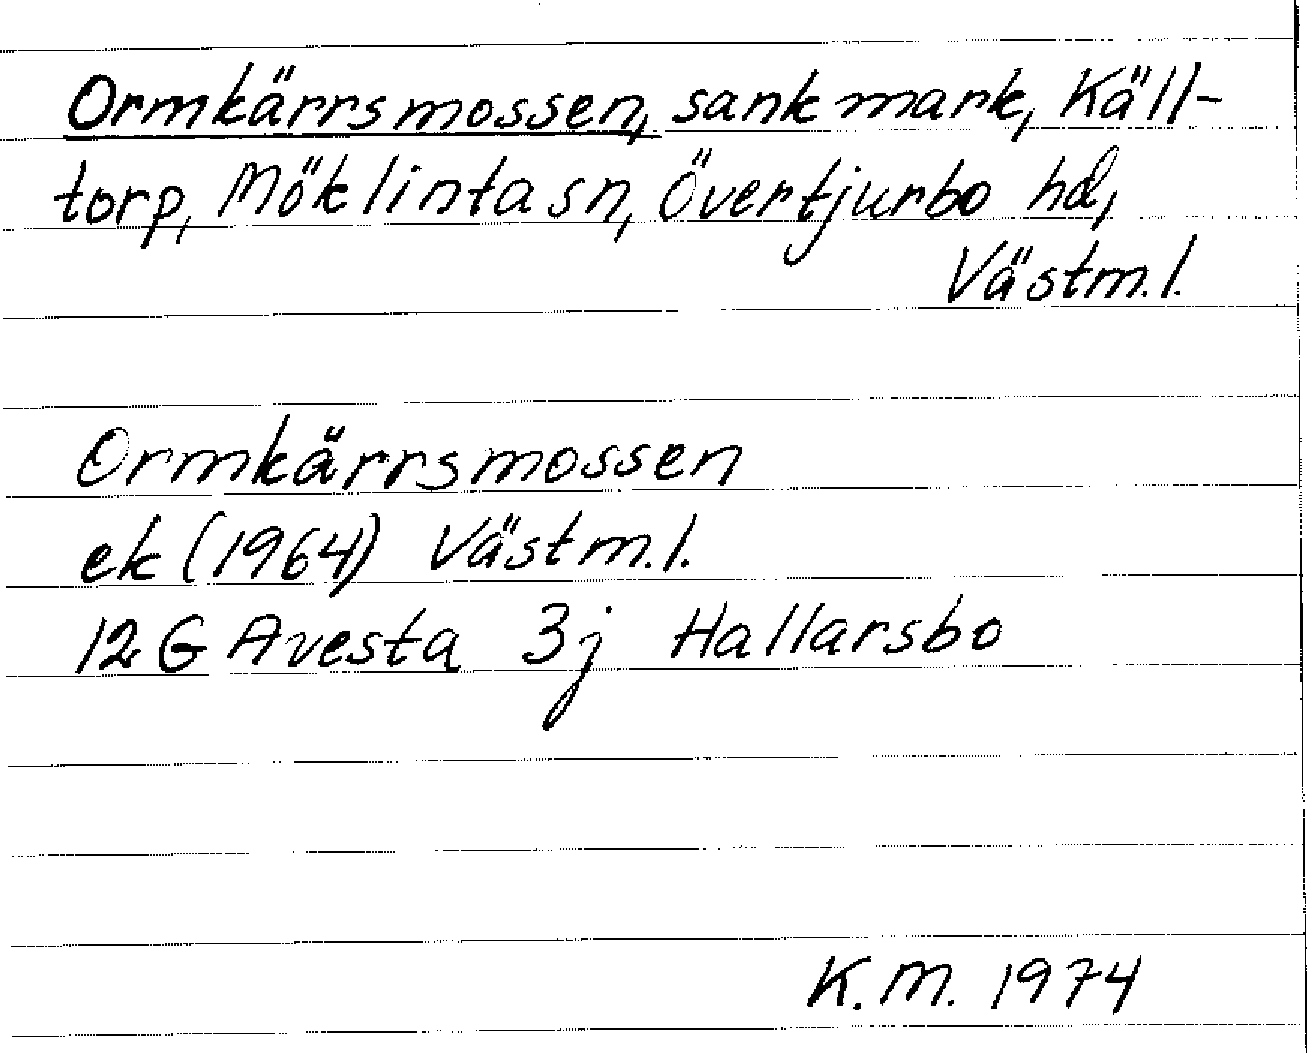 Ormkärrsmossen, sankmark, Käll-
torp, Möklinta sn, Övertjurbo hd,
Västm.l.
Ormkärrsmossen
ek (1964) Västm.l.
12 G Avesta 3j Hallarsbo
K.M. 1974